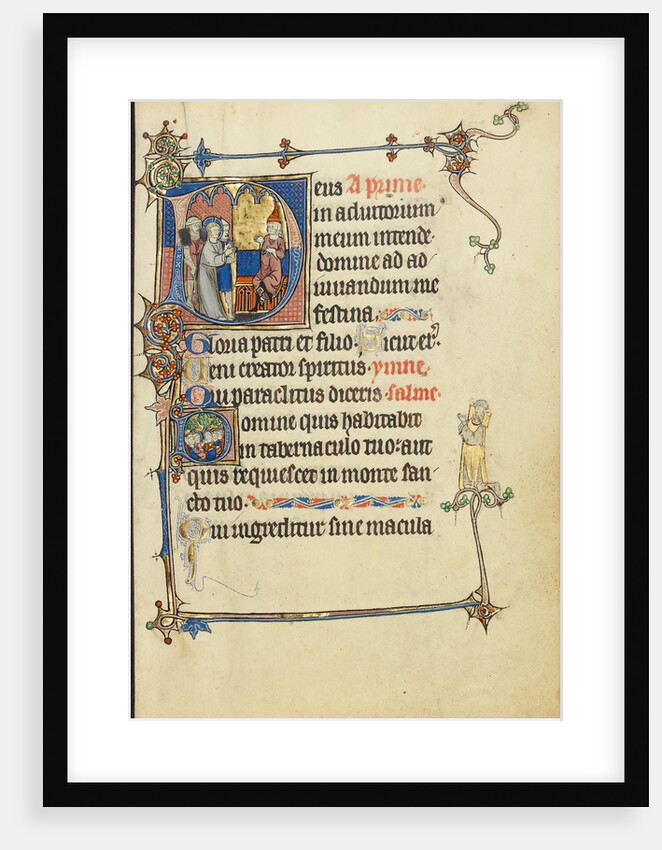 eus A prime.
in adiutorium
meum intende.
domine ad ad
iuuandum me
festina.
Gloria patri et filio. Sicut er̾.
Ueni creator spiritus. ymne.
Qui paraclitus diceris. salme.
Domine quis habitabit
in tabernaculo tuo: aut
quis requiescet in monte san-
cto tuo.
Qui ingreditur sine macula